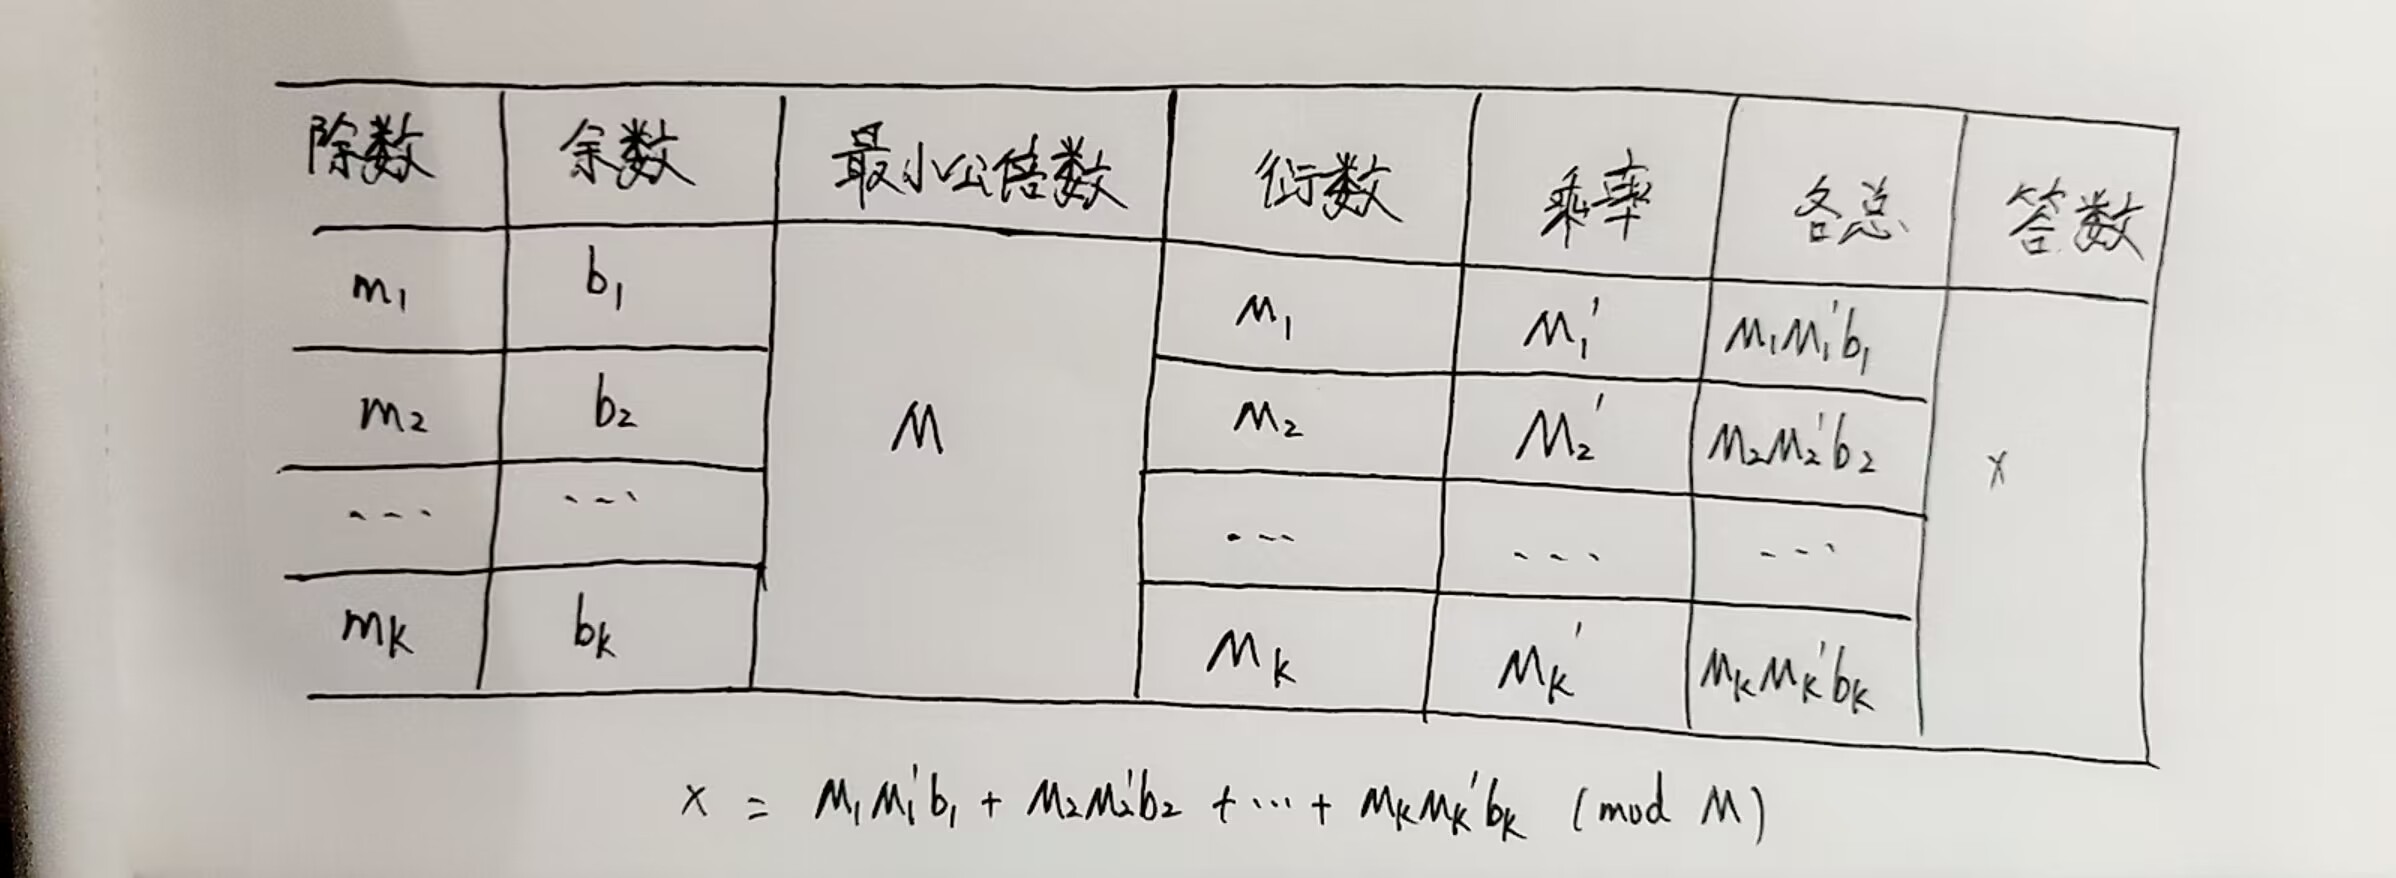 除数 余数 最小公倍数 衍数 乘率 各总 答数
m₁ b₁ M M₁ M₁′ M₁M₁′b₁ x
m₂ b₂ M₂ M₂′ M₂M₂′b₂
... ... ... ... ...
mₖ bₖ Mₖ Mₖ′ MₖMₖ′bₖ
x = M₁M₁′b₁ + M₂M₂′b₂ + ... + MₖMₖ′bₖ (mod M)